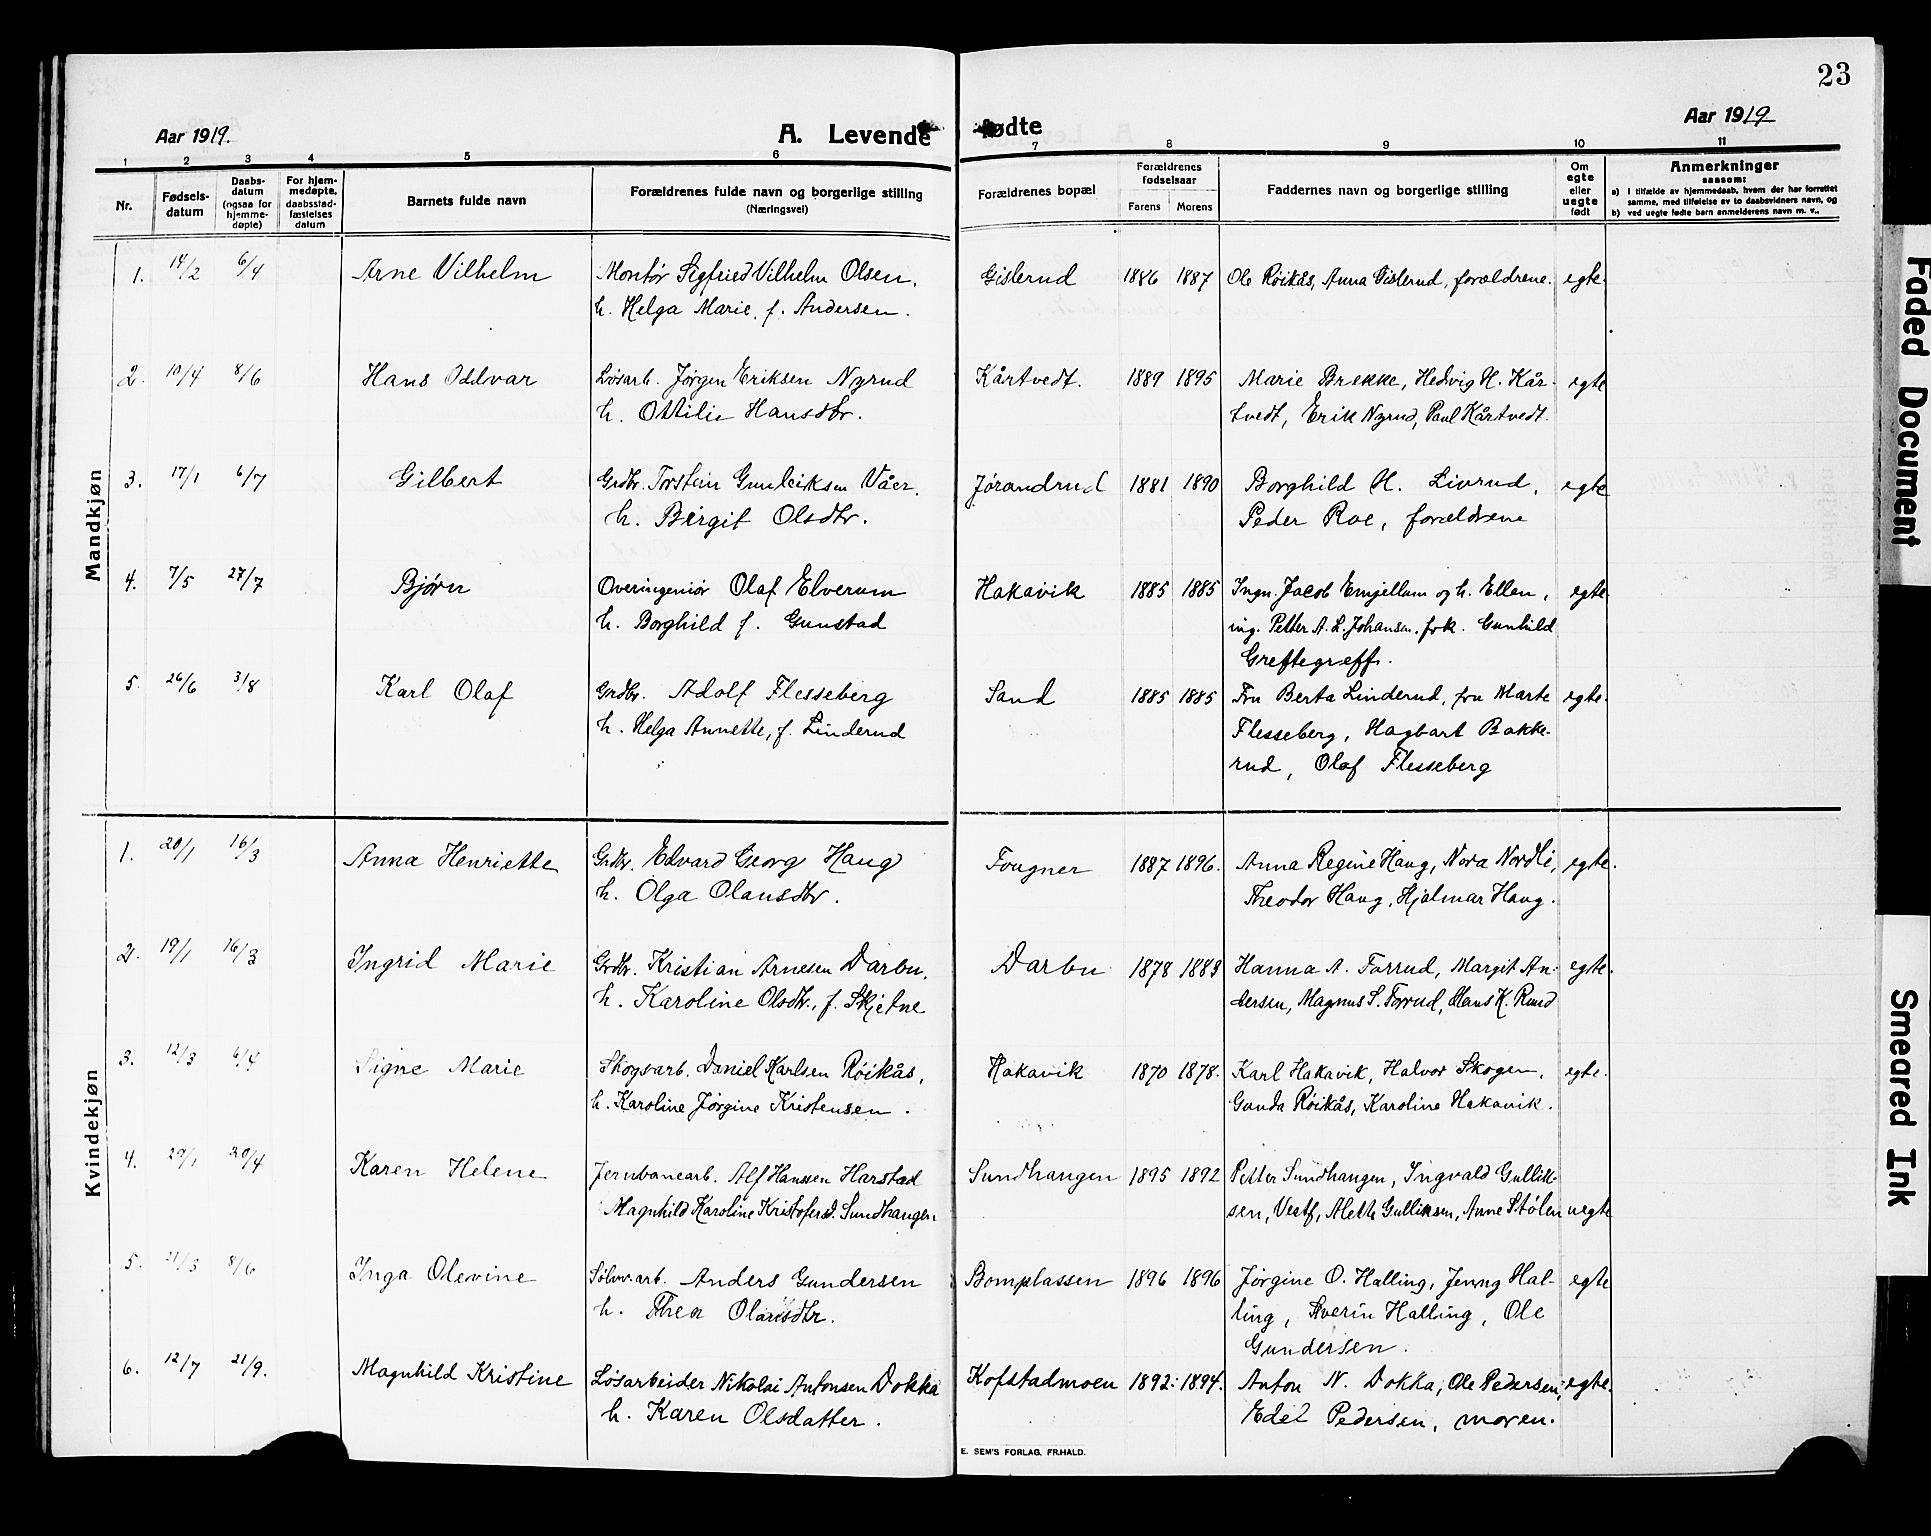 23
Aar 1919.
A. Levende fødte
Aar 1919
1 2 3 4 5 6 7 8 9 10 11
Nr.
Fødsels-
datum
Daabs-
datum
(ogsaa for
hjemme-
døpte)
For hjem-
medøpte,
daabsstad-
fæstelses
datum
Barnets fulde navn
Forældrenes fulde navn og borgerlige stilling
(Næringsvei)
Forældrenes bopæl
Forældrenes
fødselsaar
Farens Morens
Faddernes navn og borgerlige stilling
Om
egte
eller
uegte
født
Anmerkninger
saasom:
a) i tilfælde av hjemmedaab, hvem der har forrettet
samme, med tilføielse av to daabsvidners navn, og
b) ved uegte fødte barn anmelderens navn m. v..
Mandkjøn
1. 14/2 6/4 Arne Vilhelm Montør Sigfried Vilhelm Olsen, Gislerud 1886 1887 Ole Røikås, Anna Gislerud, forældrene. egte.
h. Helga Marie, f. Andersen.
2. 10/4 8/6 Hans Oddvar Løsarb. Jørgen Eriksen Nyrud Kårtvedt. 1889 1895 Marie Brekke, Hedvig H. Kår- egte
h. Ottilie Hansdtr. tvedt, Erik Nyrud, Paul Kårtvedt.
3. 17/1 6/7 Gilbert Grdbr. Torstein Gunleiksen Våer, Jørandrud 1881 1890 Borghild H. Livrud, egte
h. Birgit Olsdtr. Peder Roe, forældrene
4. 7/5 27/7 Bjørn Overingeniør Olaf Elverum Hakavik 1885 1885 Ingn. Jacob Emjellum og h. Ellen, egte.
h. Borghild f. Gunstad ing. Petter A. L. Johansen, frk. Gunhild
Greftegreff.
5. 26/6 3/8 Karl Olaf Grdbr. Adolf Flesseberg Sand 1885 1885 Fru Berta Linderud, fru Marte egte.
h. Helga Annette, f. Linderud Flesseberg, Hagbart Bakke-
rud, Olaf Flesseberg
Kvindekjøn
1. 20/1 16/3 Anna Henriette Grdbr. Edvard Georg Haug Fougner 1887 1896. Anna Regine Haug, Nora Nordli, egte.
h. Olga Olausdtr. Theodor Haug, Hjalmar Haug.
2. 19/1 16/3 Ingrid Marie Grdbr. Kristian Arnesen Darbu, Darbu 1878 1883 Hanna A. Forrud, Margit An- egte.
h. Karoline Olsdtr., f. Skjetne dersen, Magnus S. Forrud, Hans K. Ruud
3. 12/3 6/4 Signe Marie Skogsarb. Daniel Karlsen Røikås, Hakavik 1870 1878. Karl Hakavik, Halvor Skogen, egte.
h. Karoline Jørgine Kristensen. Gunda Røikås, Karoline Hakavik.
4. 29/1 20/4 Karen Helene Jernbanearb. Alf Hansen Harstad Sundhaugen 1895 1892 Petter Sundhaugen, Ingvald Gullik-
Magnhild Karoline Kristofersd. Sundhaugen sen, Vestf, Alette Gulliksen, Anne Stølen uegte
5. 21/3 8/6 Inga Olevine Sølvv.arb. Anders Gundersen Bomplassen 1896 1896 Jørgine O. Halling, Jenny Hal- egte
h. Thea Olausdtr. ling, Sverin Halling, Ole
Gundersen.
6. 12/7 21/9. Magnhild Kristine Løsarbeider Nikolai Antonsen Dokka Kofstadmoen 1892 1894. Anton N. Dokka, Ole Pedersen, egte.
h. Karen Olsdatter. Edel Pedersen, moren.
E. SEM'S FORLAG, FR.HALD.
Faded Document
Smeared Ink